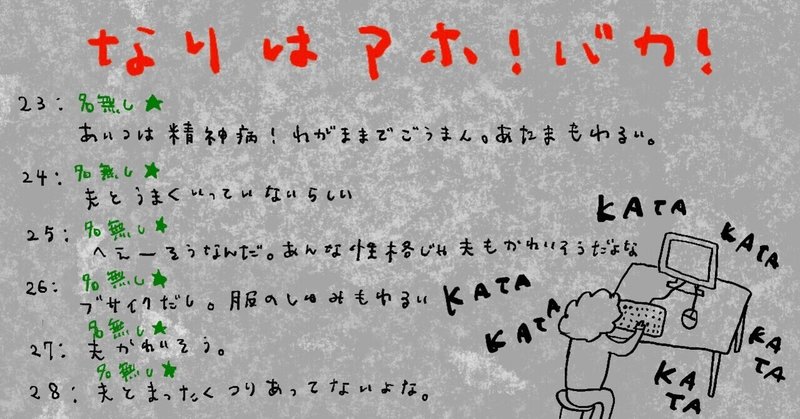 なりはアホ!バカ!
23: 名無し★
あいつは精神病!わがままでごうまん。あたまもわるい。
24: 名無し★
夫とうまくいっていないらしい
25: 名無し★
へぇーそうなんだ。あんな性格じゃ夫もかわいそうだよな
26: 名無し★
ブサイクだし。服のしゅみもわるい
27: 名無し★
夫かわいそう。
28: 名無し★
夫とまったくつりあってないよな。
KATA
KATA
KATA
KATA
KATA
KATA